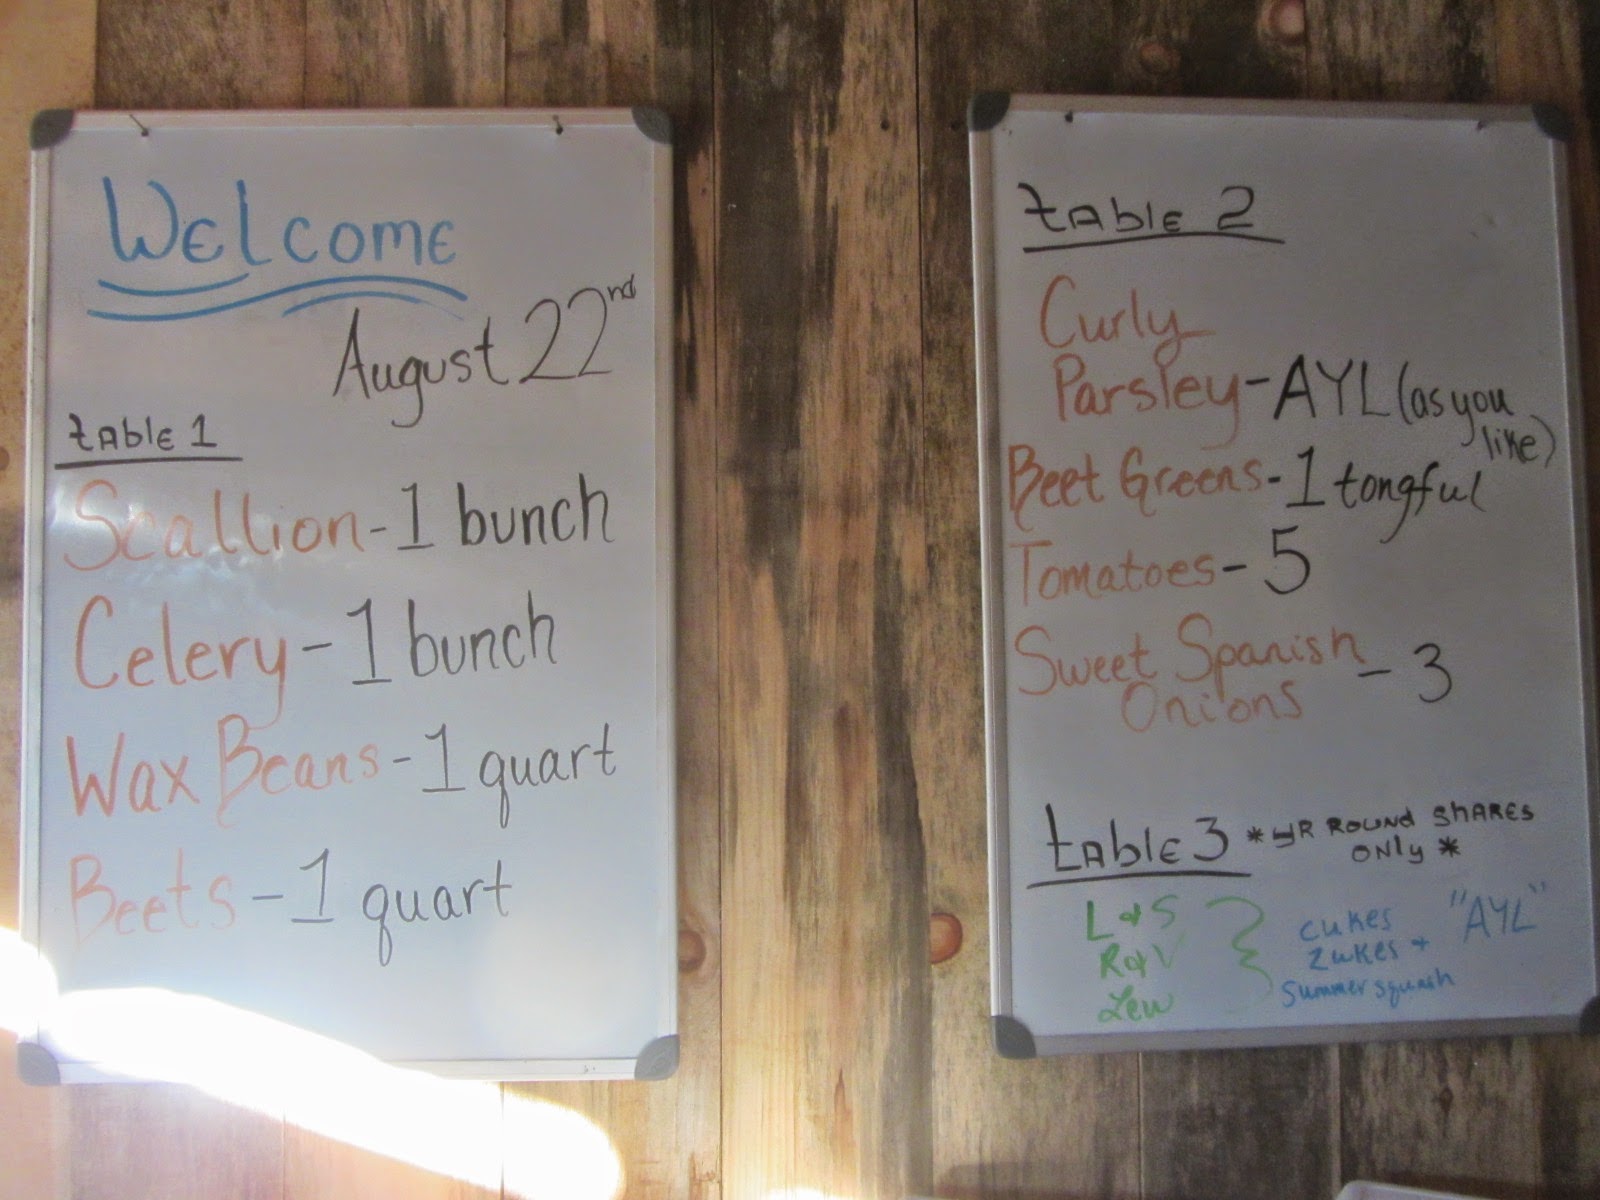 Welcome
August 22nd
Table 1
Scallion - 1 bunch
Celery - 1 bunch
Wax Beans - 1 quart
Beets - 1 quart
Table 2
Curly
Parsley - AYL (as you
like)
Beet Greens - 1 tongful
Tomatoes - 5
Sweet Spanish
Onions - 3
Table 3 *YR ROUND SHARES
ONLY *
L & S
R & V
Lew
cukes
zukes +
summer squash
"AYL"